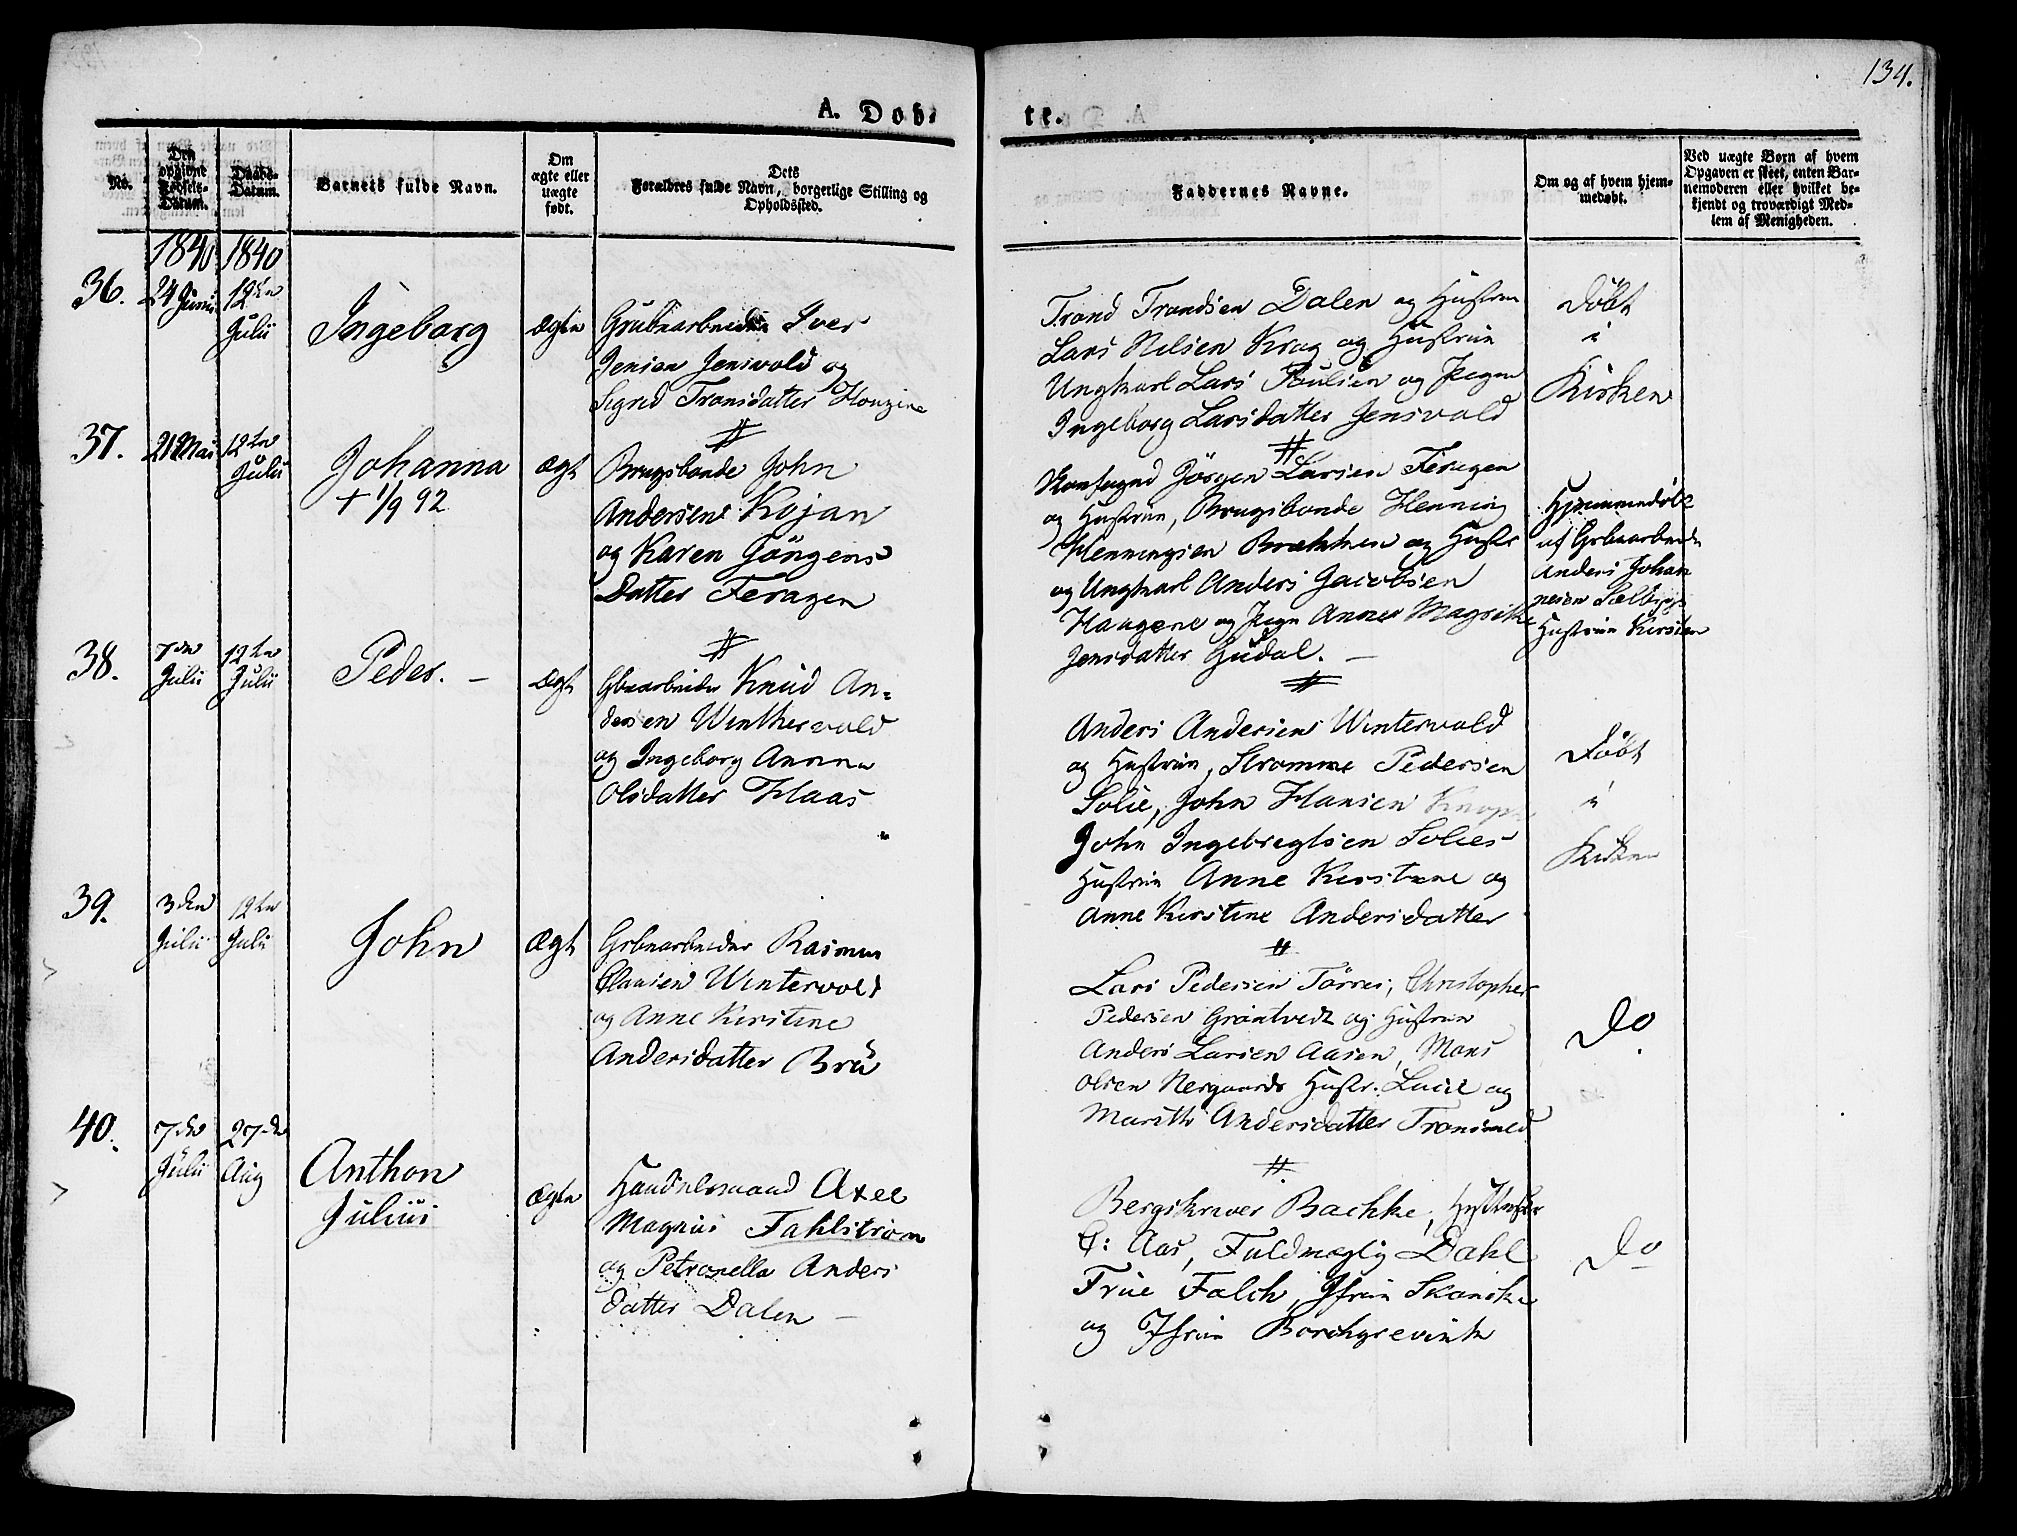 134.
A. Døb-
te.
No.
Den
opgivne
Fødsels-
Datum.
Daabs-
Datum.
Barnets fulde Navn.
Om
ægte eller
uægte
født.
Dets
Forældres fulde Navn, borgerlige Stilling og
Opholdssted.
Faddernes Navne.
Om og af hvem hjem-
medøbt.
Ved uægte Børn af hvem
Opgaven er skeet, enten Bar-
nemoderen eller hvilket be-
kjendt og troværdigt Med-
lem af Menigheden.
1840 1840
36.
24 Juni
12te
Julii
Ingeborg
ægte
Grubearbeider Iver
Jensen Jensvold og
Sigrid Tronsdatter
Trond Trondsen Dalen og Hustrue
Lars Nilsen Krog og Hustrue
Ungkarl Lars Poulsen og Pigen
Ingeborg Larsdatter Jensvold
Døbt
i
Kirken
37.
21 Mai
12te
Julii
Johanna
+ 1/9 92
ægt
Brugsbonde John
Andersen Kojan
og Karen Jörgens
Datter Feragen
Jörgen Larsen Feragen
og Hustrue, Brugsbonde Henning
Henningsen Brækken og Hustr
og Ungkarl Anders Jacobsen
Haugene og Pige Anne Magrethe
Jensdatter Gudal. —
Hjemmedøbt
af Grbearbeider
Anders Johan
nesen
Hustrue Kirsten
38.
7de
Julii
12te
Julii
Peder. —
ægt
Gbearbeider Knud An-
dersen Winthervold
og Ingeborg Anna
Olsdatter Haas
Anders Andersen Wintervold
og Hustrue, Stromme Pedersen
Solie, John Hansen
John Ingebregtsen Solies
Hustrue Anne Kirstine og
Anne Kirstine Andersdatter
Døbt
i
Kirken
39.
3den
Julii
12te
Julii
John
ægt
Grbearbeider Rasmus
Clausen Wintervold
og Anne Kirstine
Andersdatter Bru
Lars Pedersen Törres, Christopher
Pedersen Grøntvedt og Hustrue
Anders Larsen Aasen, Mons
Olsen Nergaards Hustr. Lucie og
Marith Andersdatter Tronsvold
Do
40.
7de
Julii
27de
Aug
Anthon
Julius
ægte
Handelsmand Axel
Magnus Fahlstrøm
og Petronella Anders
datter Dalen —
Bergskriver Bachke,
C: Aas, Fuldmægtig Dahl
Frue Falch, Jfrue Skanche
og Jfrue Borchgrevink
Do